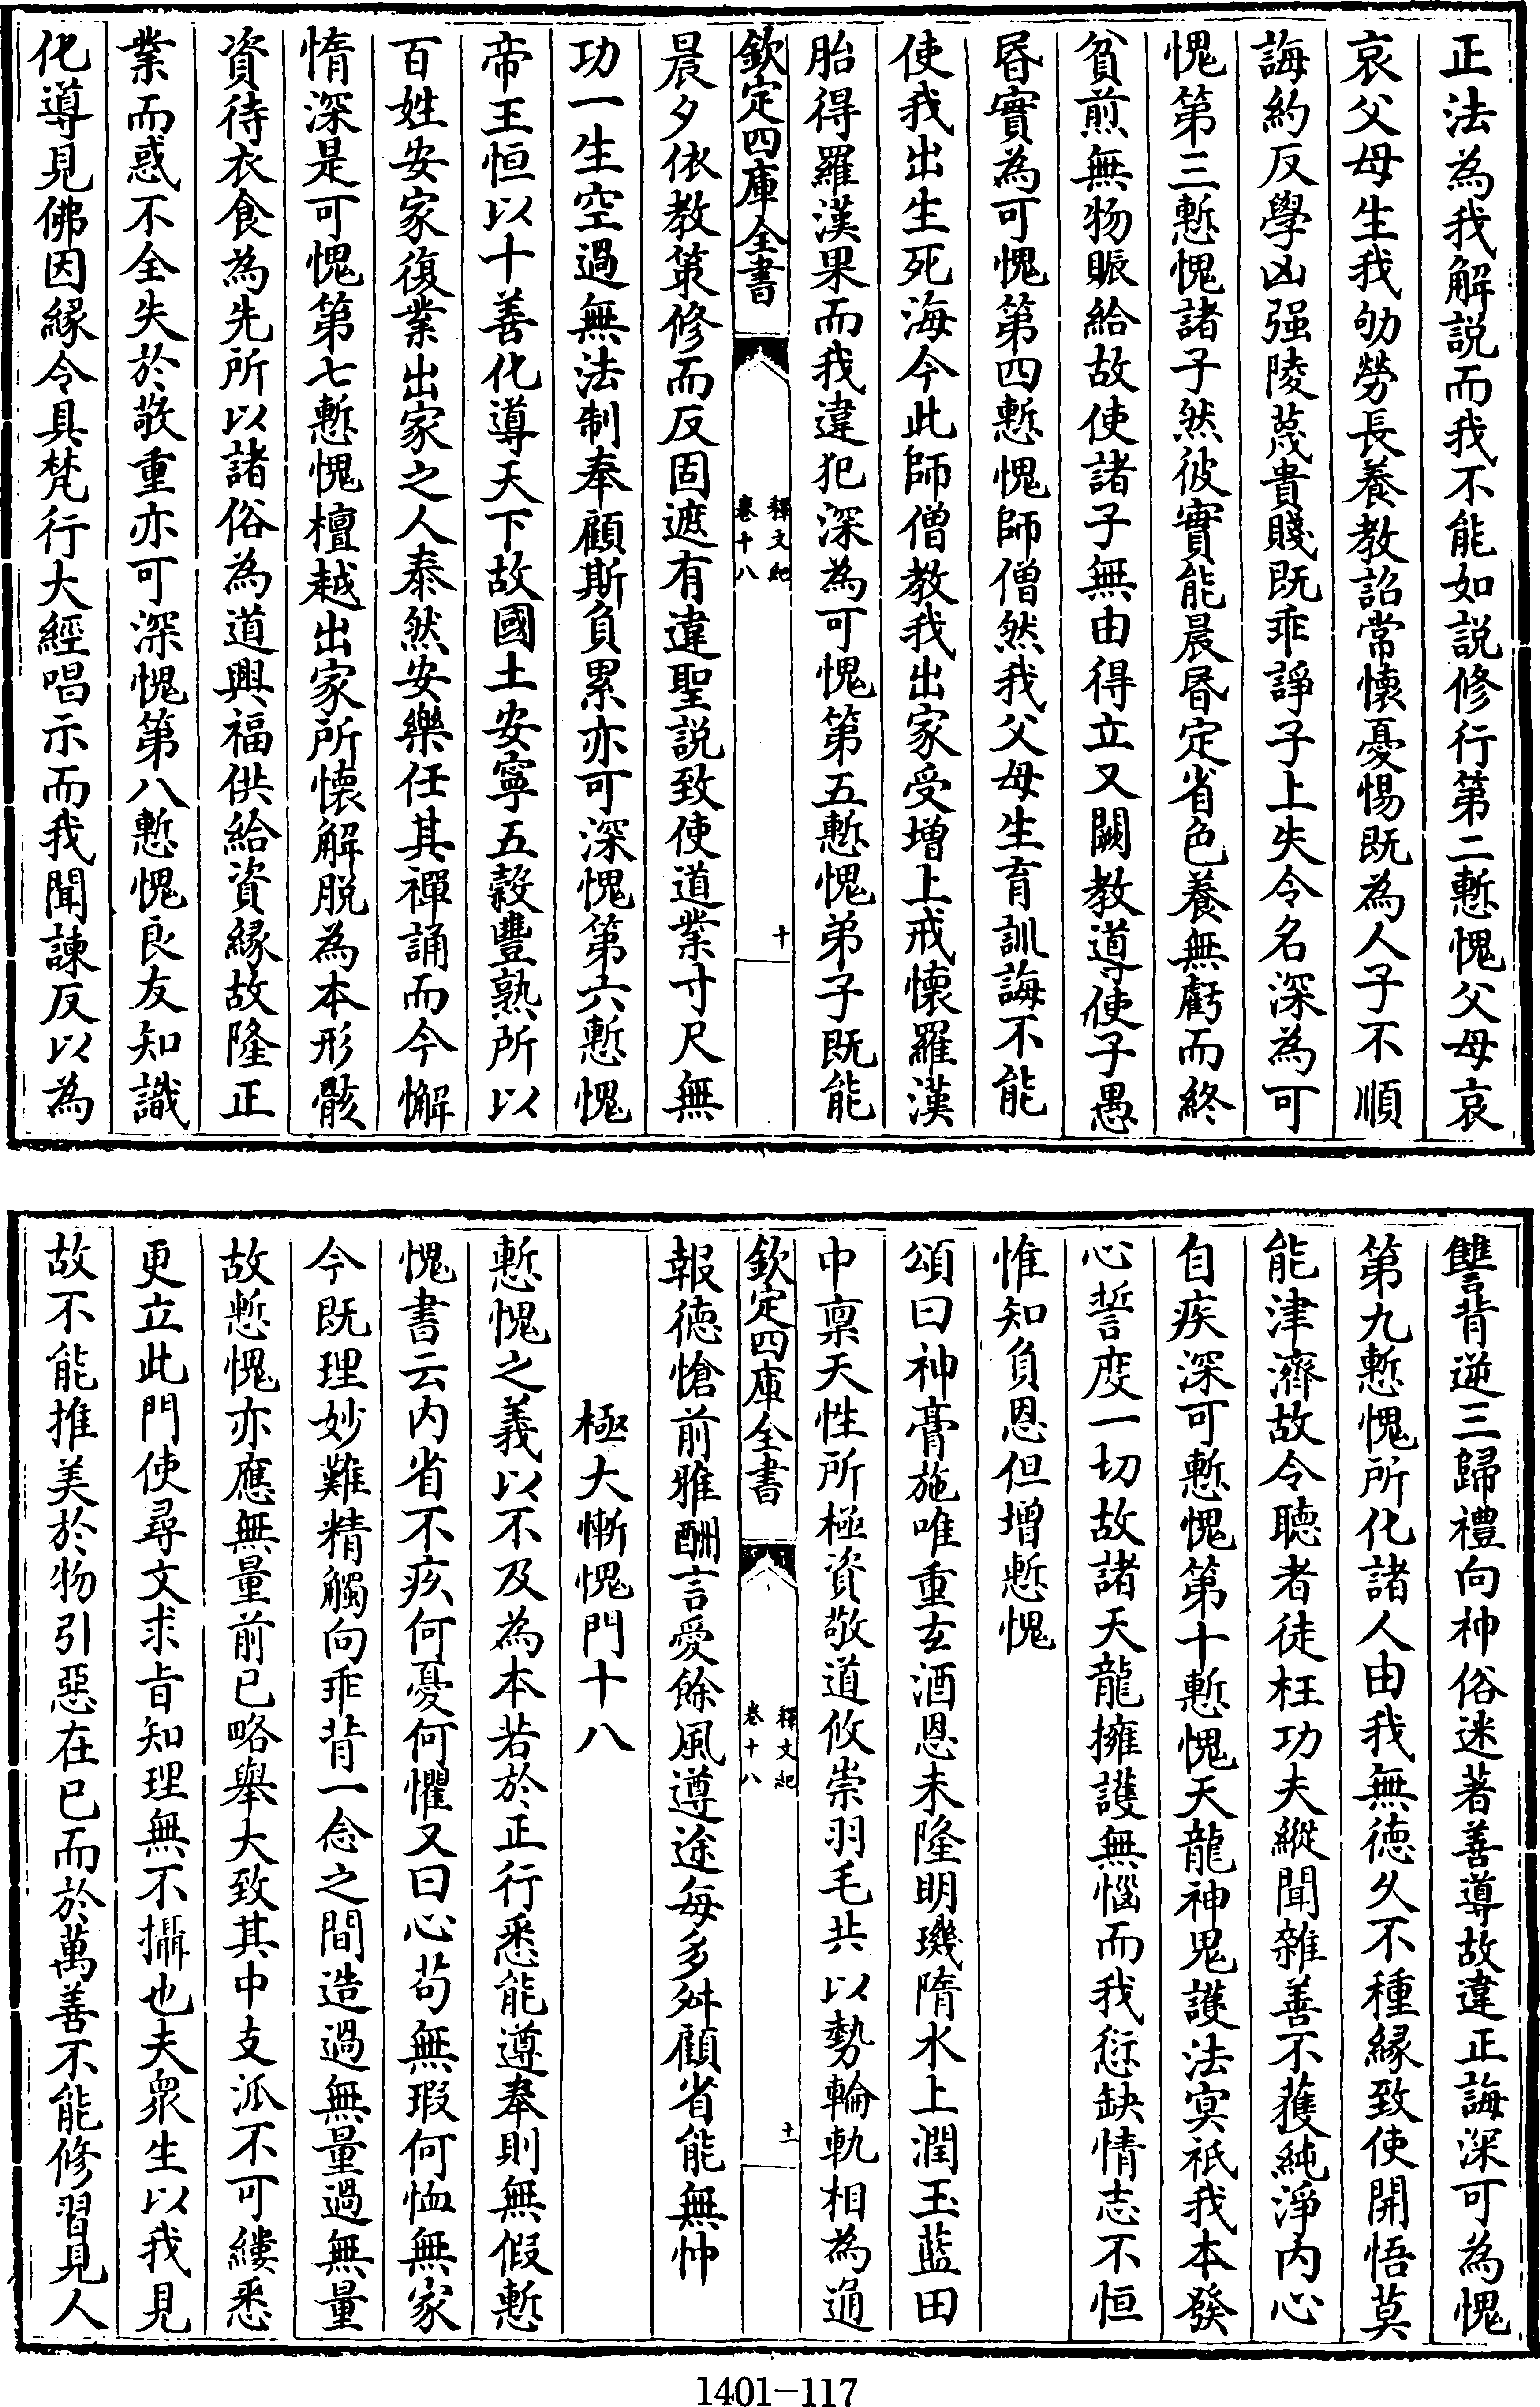 正法為我解説而我不能如説修行第二慙愧父母哀
哀父母生我劬勞長養教詔常懷憂惕既為人子不順
誨約反學凶强陵蔑貴賤既乖諍子上失令名深為可
愧第三慙愧諸子然彼實能晨昬定省色養無虧而終
貧煎無物賑給故使諸子無由得立又闕教導使子愚
昬實為可愧第四慙愧師僧然我父母生育訓誨不能
使我出生死海今此師僧教我出家受增上戒懷羅漢
胎得羅漢果而我違犯深為可愧第五慙愧弟子既能
欽定四庫全書
釋文紀
卷十八
十
晨夕依教策修而反固遮有違聖説致使道業寸尺無
功一生空過無法制奉顧斯負累亦可深愧第六慙愧
帝王恒以十善化導天下故國土安寧五穀豐熟所以
百姓安家復業出家之人泰然安樂任其禪誦而今懈
惰深是可愧第七慙愧檀越出家所懷解脱為本形骸
資待衣食為先所以諸俗為道興福供給資緣故隆正
業而惑不全失於敬重亦可深愧第八慙愧良友知識
化導見佛因緣令具梵行大經唱示而我聞諫反以為
讐背逆三歸禮向神俗迷著善導故違正誨深可為愧
第九慙愧所化諸人由我無徳久不種緣致使開悟莫
能津濟故令聽者徒枉功夫縱聞雜善不獲純淨内心
自疾深可慙愧第十慙愧天龍神鬼護法冥祇我本發
心誓度一切故諸天龍擁護無惱而我愆缺情志不恒
惟知負恩但增慙愧
頌曰神膏施唯重玄酒恩未隆明璣隋水上潤玉藍田
中禀天性所極資敬道攸崇羽毛共以勢輪軌相為通
欽定四庫全書
釋文紀
卷十八
十一
報徳愴前雅酬言愛餘風遵途每多舛顧省能無忡
極大慚愧門十八
慙愧之義以不及為本若於正行悉能遵奉則無假慙
愧書云内省不疚何憂何懼又曰心苟無瑕何恤無家
今既理妙難精觸向乖背一念之間造過無量過無量
故慙愧亦應無量前已略舉大致其中支派不可縷悉
更立此門使尋文求旨知理無不攝也夫衆生以我見
故不能推美於物引惡在已而於萬善不能修習見人
1401-117